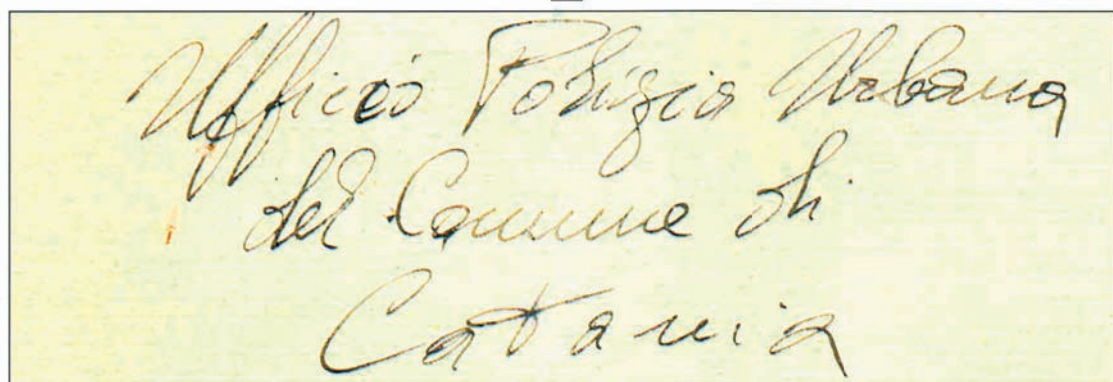 Ufficio Polizia Urbana
del Comune di
Catania